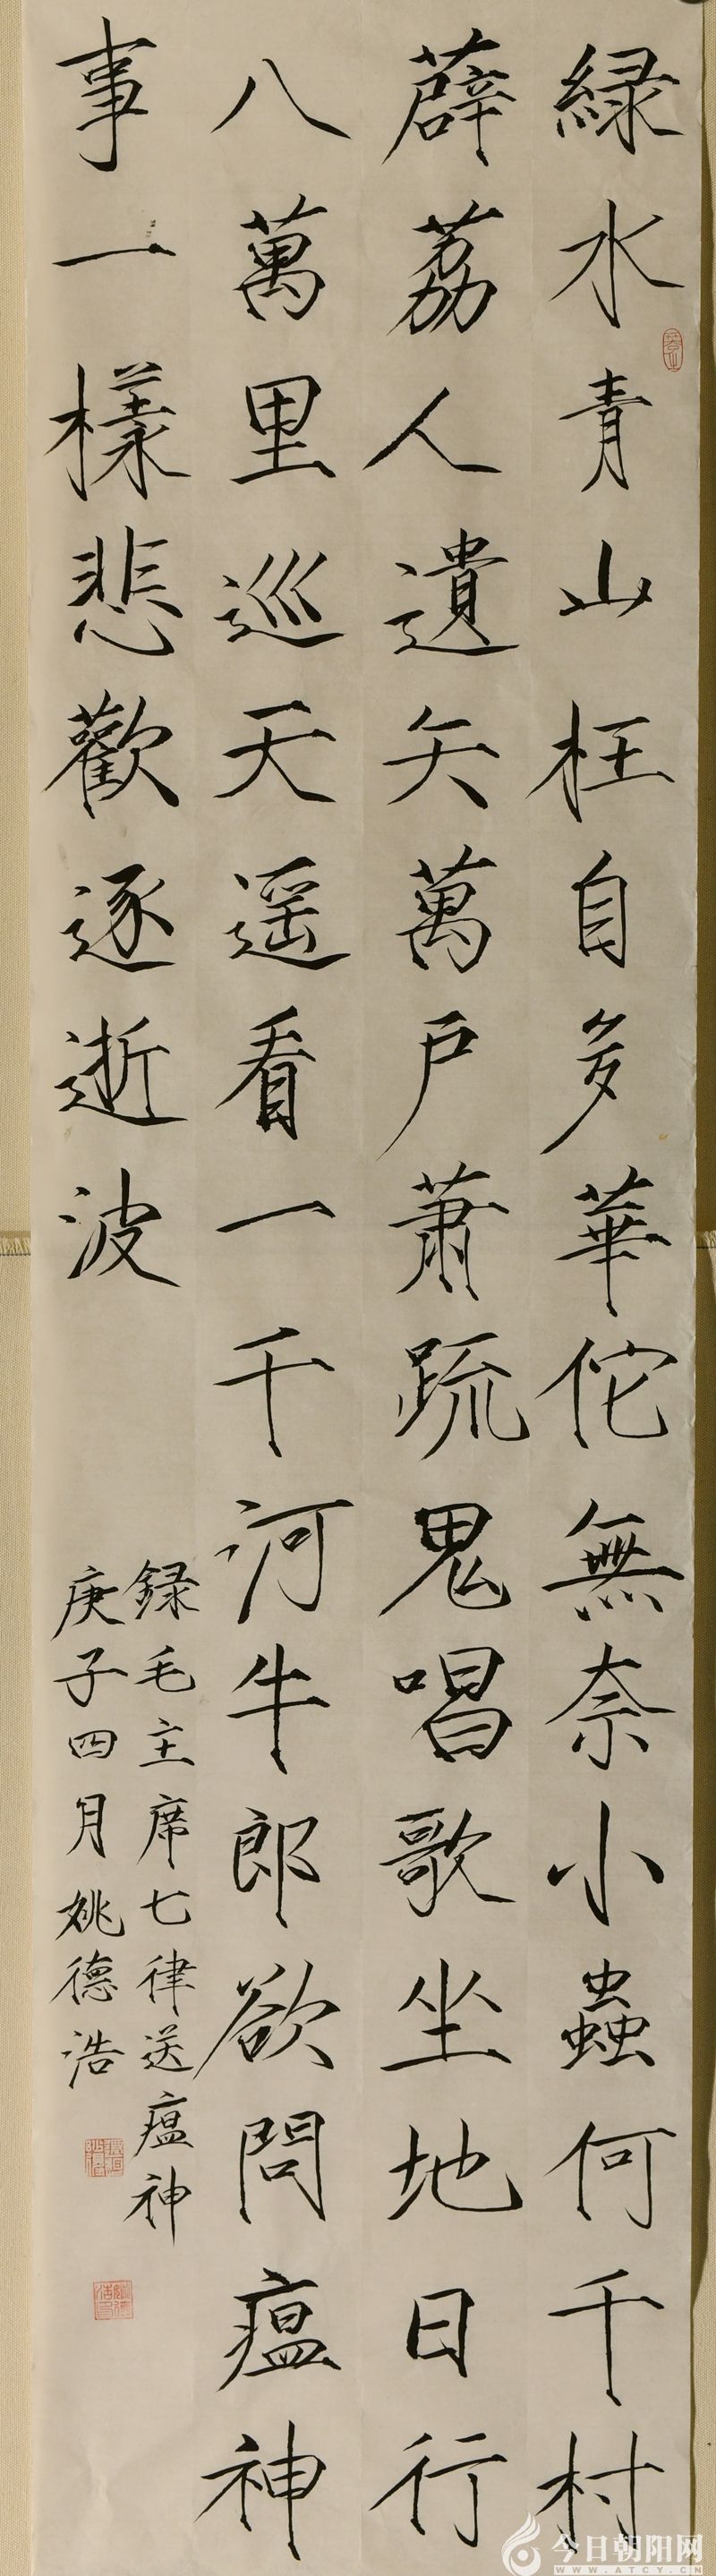 綠水青山枉自多華佗無奈小蟲何千村
薜荔人遺矢萬户蕭疏鬼唱歌坐地日行
八萬里巡天遥看一千河牛郎欲問瘟神
事一樣悲歡逐逝波
録毛主席七律送瘟神
庚子四月姚德浩
今日朝阳网
WWW.ATCY.CN